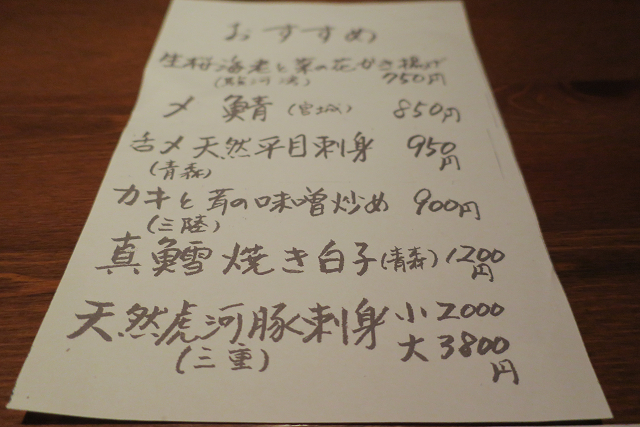 おすすめ
生桜海老と菜の花かき揚げ
(駿河湾) 750円
〆鯖(宮城) 850円
活〆天然平目刺身 950円
(青森)
カキと茸の味噌炒め 900円
(三陸)
真鱈焼き白子(青森) 1200円
天然虎河豚刺身 小2000
(三重) 大3800円